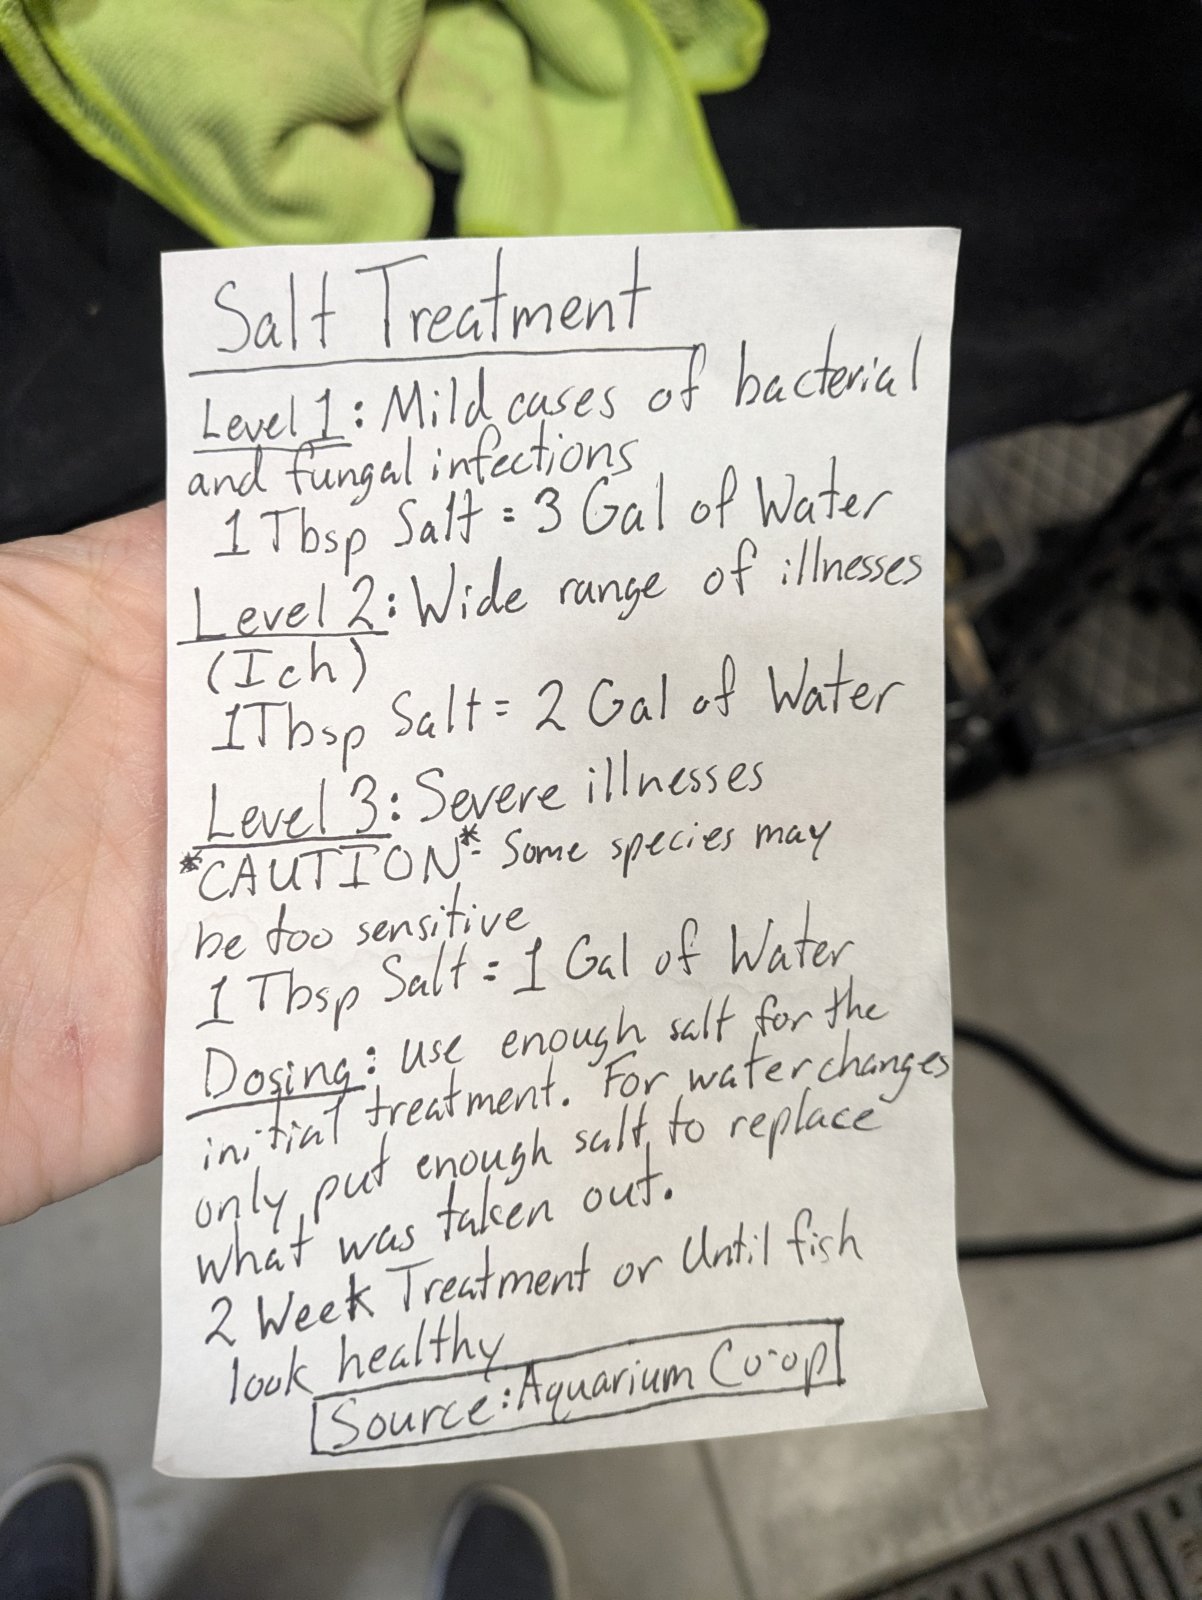 Salt Treatment
Level 1: Mild cases of bacterial
and fungal infections
1 Tbsp Salt = 3 Gal of Water
Level 2: Wide range of illnesses
(Ich)
1 Tbsp Salt = 2 Gal of Water
Level 3: Severe illnesses
*CAUTION* - Some species may
be too sensitive
1 Tbsp Salt = 1 Gal of Water
Dosing: use enough salt for the
initial treatment. For water changes
only put enough salt to replace
what was taken out.
2 Week Treatment or Until fish
look healthy
Source: Aquarium Co-op